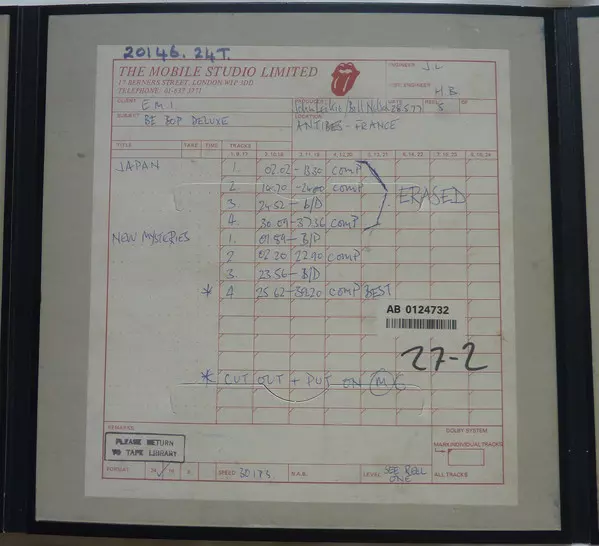 20146. 24T.
THE MOBILE STUDIO LIMITED
17 BERNERS STREET, LONDON W1P 3DD
TELEPHONE: 01-637 3771
ENGINEER J.L
ENGINEER H.B.
CLIENT EMI
PRODUCER John Leckie/Bill Nelson DATE REEL 8 OF
SUBJECT BE BOP DELUXE
LOCATION ANTIBES - FRANCE
TITLE TAKE TIME TRACKS
1, 9, 17 2, 10, 18 3, 11, 19 4, 12, 20 5, 13, 21 6, 14, 22 7, 15, 23 8, 16, 24
JAPAN 1. 02.02 - COMP
2. 14.70 - COMP ERASED
3. 24.52 - B/D
4. 30.09 - 37.56 COMP
NEW MYSTERIES 1. 01.89 - B/D
2 02.20 22.90 COMP
3. 23.56 - B/D
* 4 25.62 - 39.20 COMP BEST
AB 0124732
27-2
* CUT OUT + PUT ON M6
REMARKS
PLEASE RETURN
TO TAPE LIBRARY
DOLBY SYSTEM
MARK INDIVIDUAL TRACKS
ALL TRACKS
FORMAT: 24 16 8 SPEED 30 I.P.S N.A.B. LEVEL SEE REEL
ONE